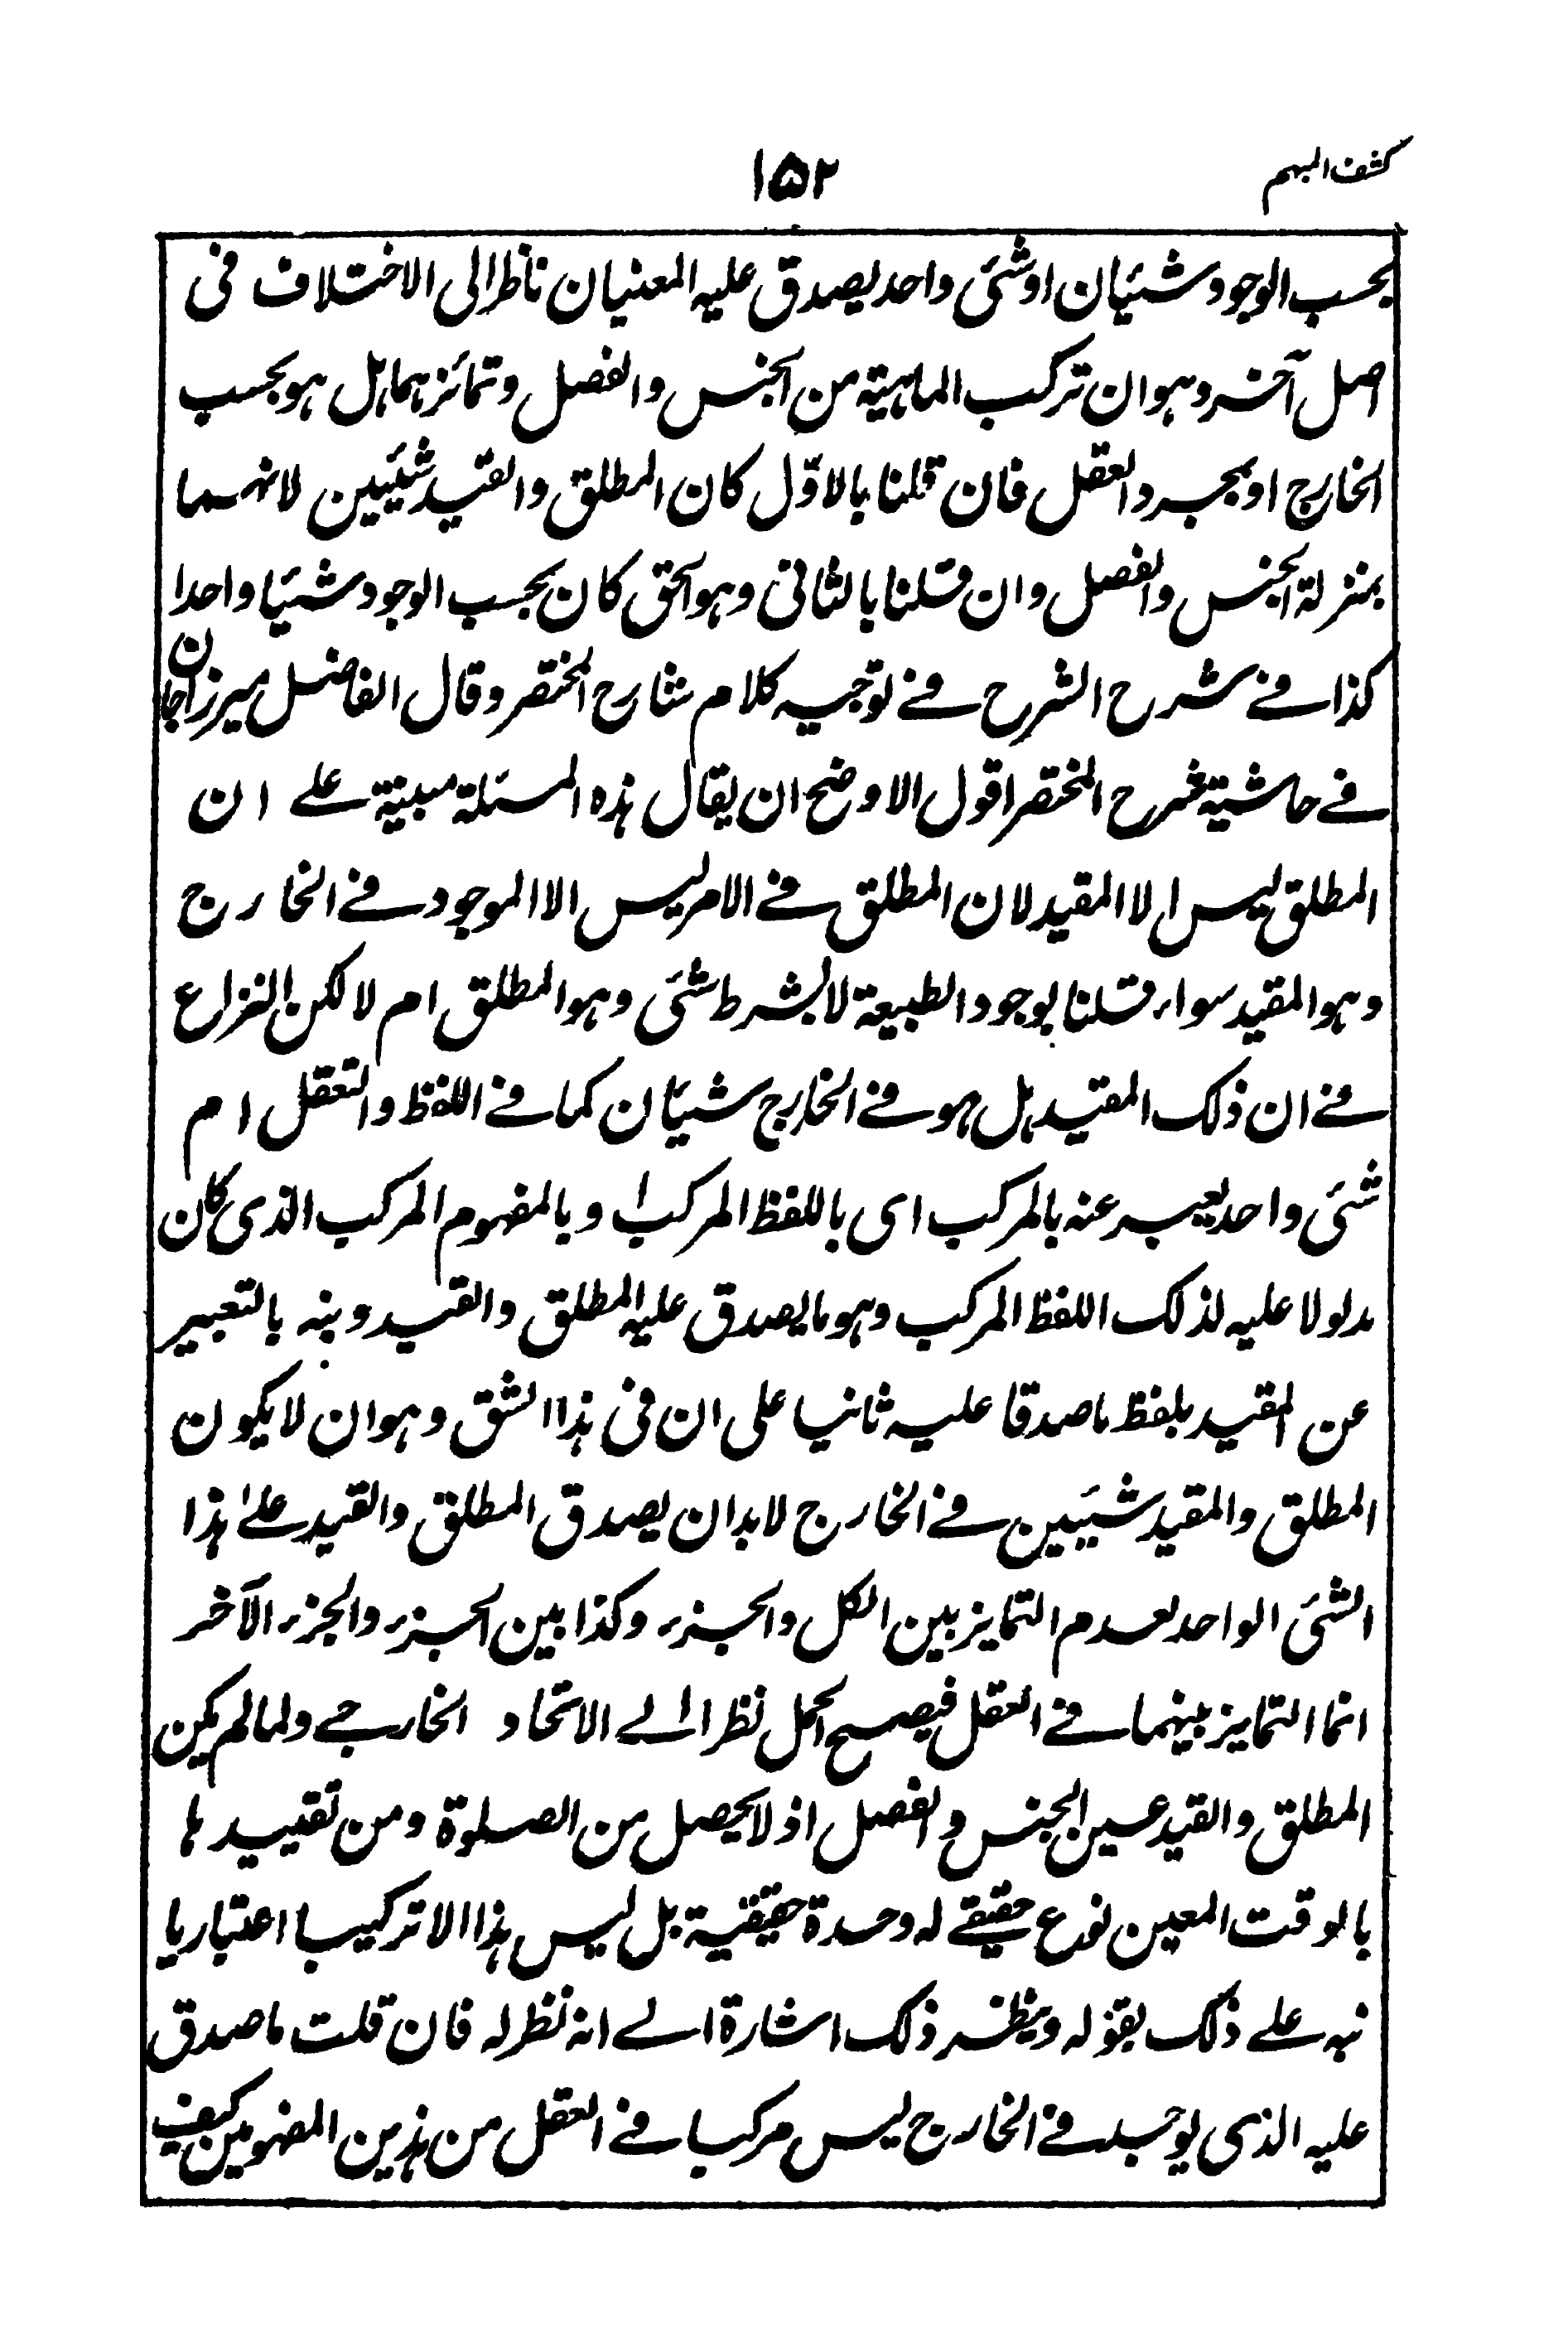 كشف المبهم
۱۵۲
بحسب الوجود شيئان او شئ واحد يصدق عليه المعنيان ناظرا الى الاختلاف فى
اصل آخر وهو ان تركب الماهية من الجنس والفصل وتمائزهما هل هو بحسب
الخارج او بمجرد العقل فان قلنا بالاوّل كان المطلق والقيد شيئيين لانهما
بمنزلة الجنس والفصل وان قلنا بالثانى وهو الحق كان بحسب الوجود شيئا واحدا
كذا فے شرح الشرح فے توجيه كلام شارح المختصر وقال الفاضل ميرزاجان
فے حاشية شرح المختصر اقول الاوضح ان يقال هذه المسئلة مبنية علے ان
المطلق ليس الا المقيد لان المطلق فے الامر ليس الا الموجود فے الخارج
وهو المقيد سواء قلنا بوجود الطبيعة لا بشرط شئ وهو المطلق ام لا لكن النزاع
فے ان ذلك المقيد هل هو فے الخارج شيئان كما فے اللفظ والتعقل ام
شئ واحد يعبر عنه بالمركب اى باللفظ المركب ا وبالمفهوم المركب الذى كان
مدلولا عليه لذلك اللفظ المركب وهو ما يصدق عليه المطلق والقيد وينه بالتعبير
عن المقيد بلفظ ما صدقا عليه ثانيا على ان فى هذا الشق وهو ان لا يكون
المطلق والمقيد شيئيين فے الخارج لا بد ان يصدق المطلق والقيد علےٰ هذا
الشئ الواحد لعدم التمايز بين الكل والجزء وكذا بين الجزء والجزء الآخر
انما التمايز بينهما فے العقل فيصح الحمل نظرا الے الاتحاد الخارجے ولما لم يكن
المطلق والقيد عين الجنس والفصل اذ لا يحصل من الصلوة ومن تقييدها
بالوقت المعين نوع حقيقے له وحدة حقيقية بل ليس هذا الا تركيبا اعتباريا
نبه علے ذلك بقوله وينظر ذلك اشارة الے انه نظر له فان قلت ما صدق
عليه الذى يوجد فے الخارج ليس مركبا فے العقل من هذين المفهومين كيف